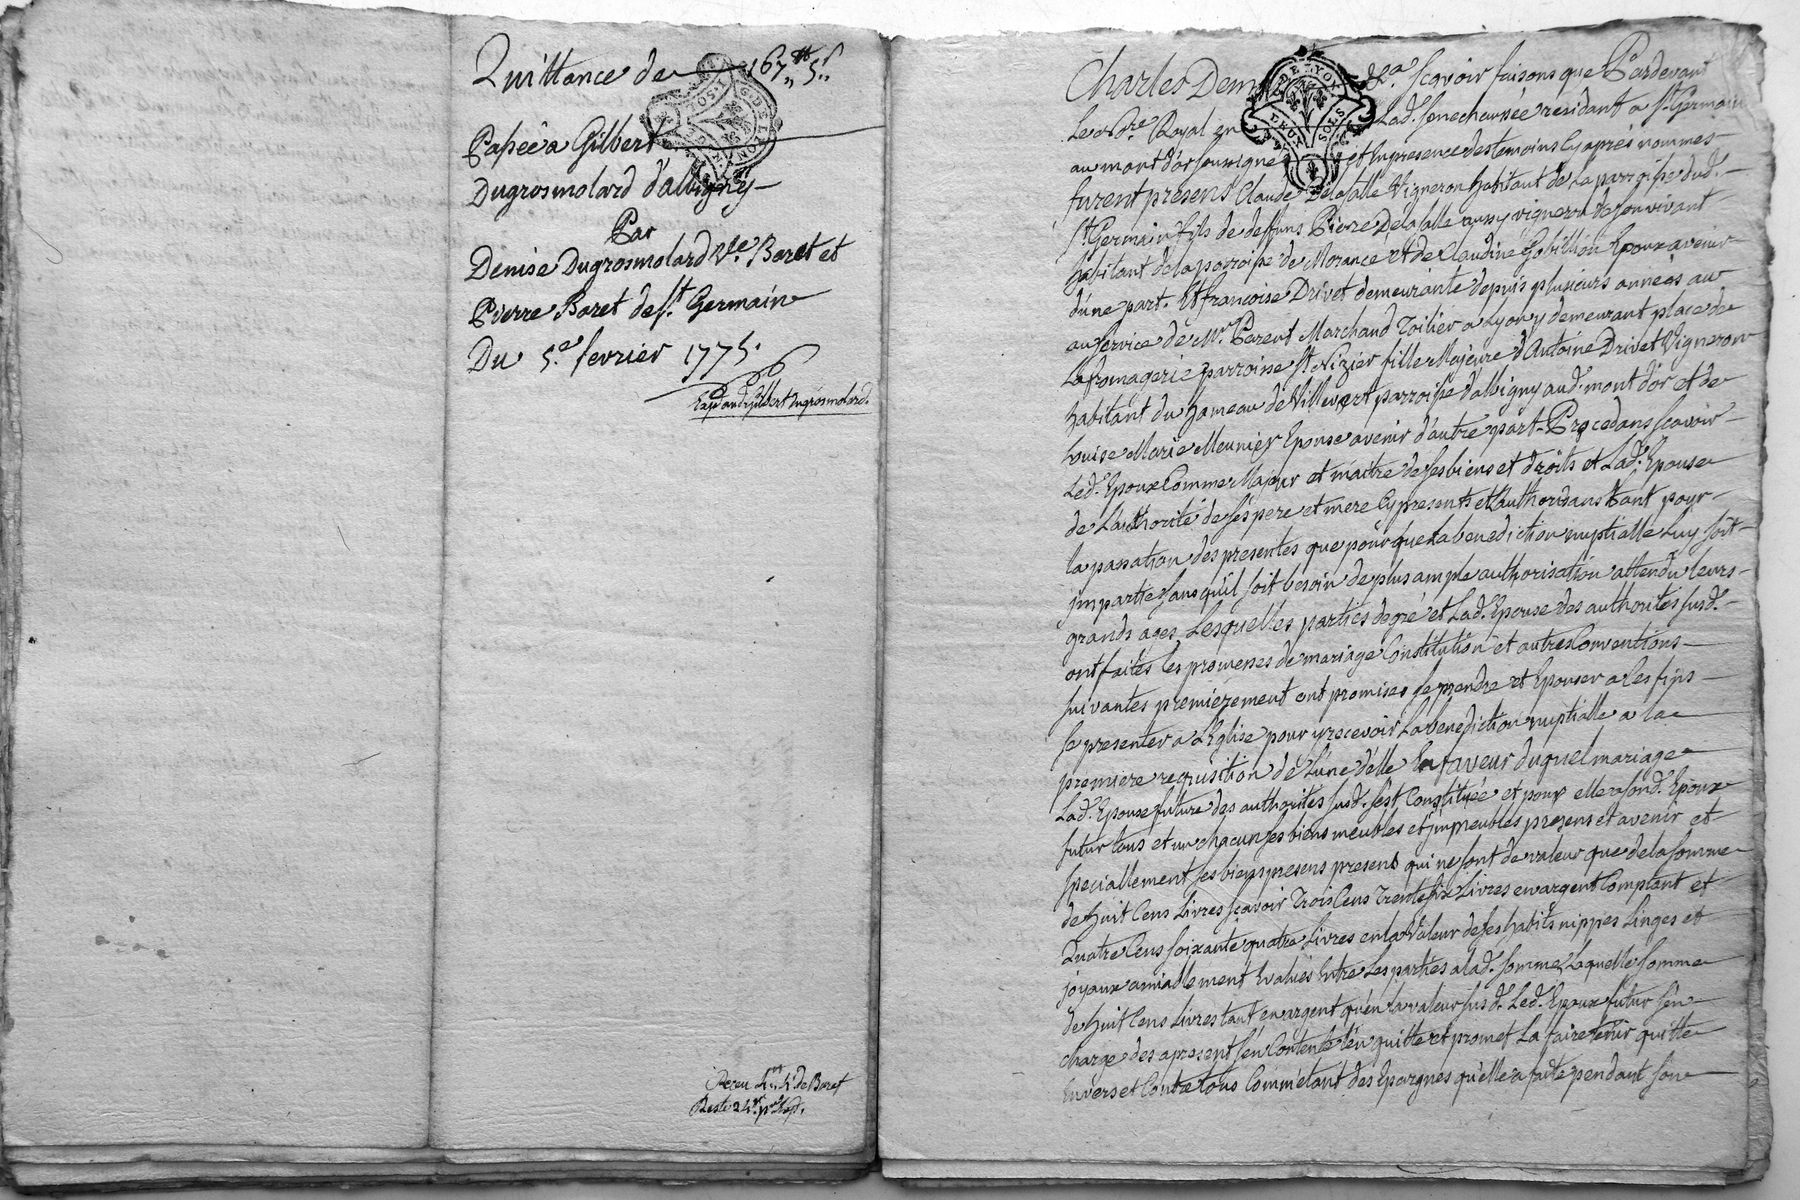 Quittance de 167₶ 5ſ
Paßée a Gilbert
Dugrosmolard d'albigny
Par
Denise Dugrosmolard Ve. Boret et
Pierre Boret de St. Germain
Du 5e. fevrier 1775.
Exp. aud. gilbert dugrosmolard.
Receu de Boret
Reste 24
G. DE LYON
DEUX SOLS
Charles Dem &ca. Scavoir faisons que Pardevant
Le Nore. Royal en Lad. senechaussée residant a St. Germain
au mont d'or soussigné et en presence des temoins cy aprés nommés
furent presens Claude Delasalle Vigneron habitant de la parroisse dud.
St. Germain fils de deffuns Pierre Delasalle aussy vigneron de son vivant
habitant de la parroisse de Morancé et de Claudine Gobillion Epoux avenir
d'une part. Et francoise Drivet demeurante depuis plusieurs années au
au service de Mr. Parent Marchand Toilier a Lyon y demeurant place de
La fromagerie parroisse St. Nizier fille Majeure d'Antoine Drivet Vigneron
habitant du hameau de Villevert parroisse d'albigny aud. mont d'or et de
Louise Marie Meunier Epouse avenir d'autre part. Procedans scavoir
Led. Epoux Comme Majeur et maitre de ses biens et droits et Lad. Epouse
de L'authorité de ses pere et mere Cy presents et L'authorisans tant pour
la passation des presentes que pour que La benediction nuptialle Luy soit
impartie sans qu'il soit besoin de plus ample authorisation attendu leurs
grands ages Lesquelles parties de gré et Lad. Epouse des authorités susd.
ont faites les promesses de mariage Constitution et autres Conventions
suivantes premiérement ont promises se prendre et Epouser a Ces fins
se presenter a L'Eglise pour y recevoir La benediction nuptialle a la
premiere requisition de L'une d'elle En faveur duquel mariage
Lad. Epouse future des authorités susd. s'est Constituée et pour elle a sond. Epoux
futur tous et un chacun ses biens meubles et immeubles presens et avenir et
speciallement ses biens presens presens qui ne sont de valeur que de la somme
de huit Cens Livres scavoir Trois Cens Trente six Livres en argent Comptant et
Quatre Cens soixante quatre Livres en la Valeur de ses habits nippes Linges et
joyaux amiablement Evalués Entre Les parties a lad. somme Laquelle somme
de huit Cens Livres tant en argent qu'en la valeur susd. Led. Epoux futur s'en
charge des apresent s'en Contente L'en quitte et promet La faire tenir quitte
Envers et Contre tous Comm'étant des Epargnes qu'elle a faite pendant son